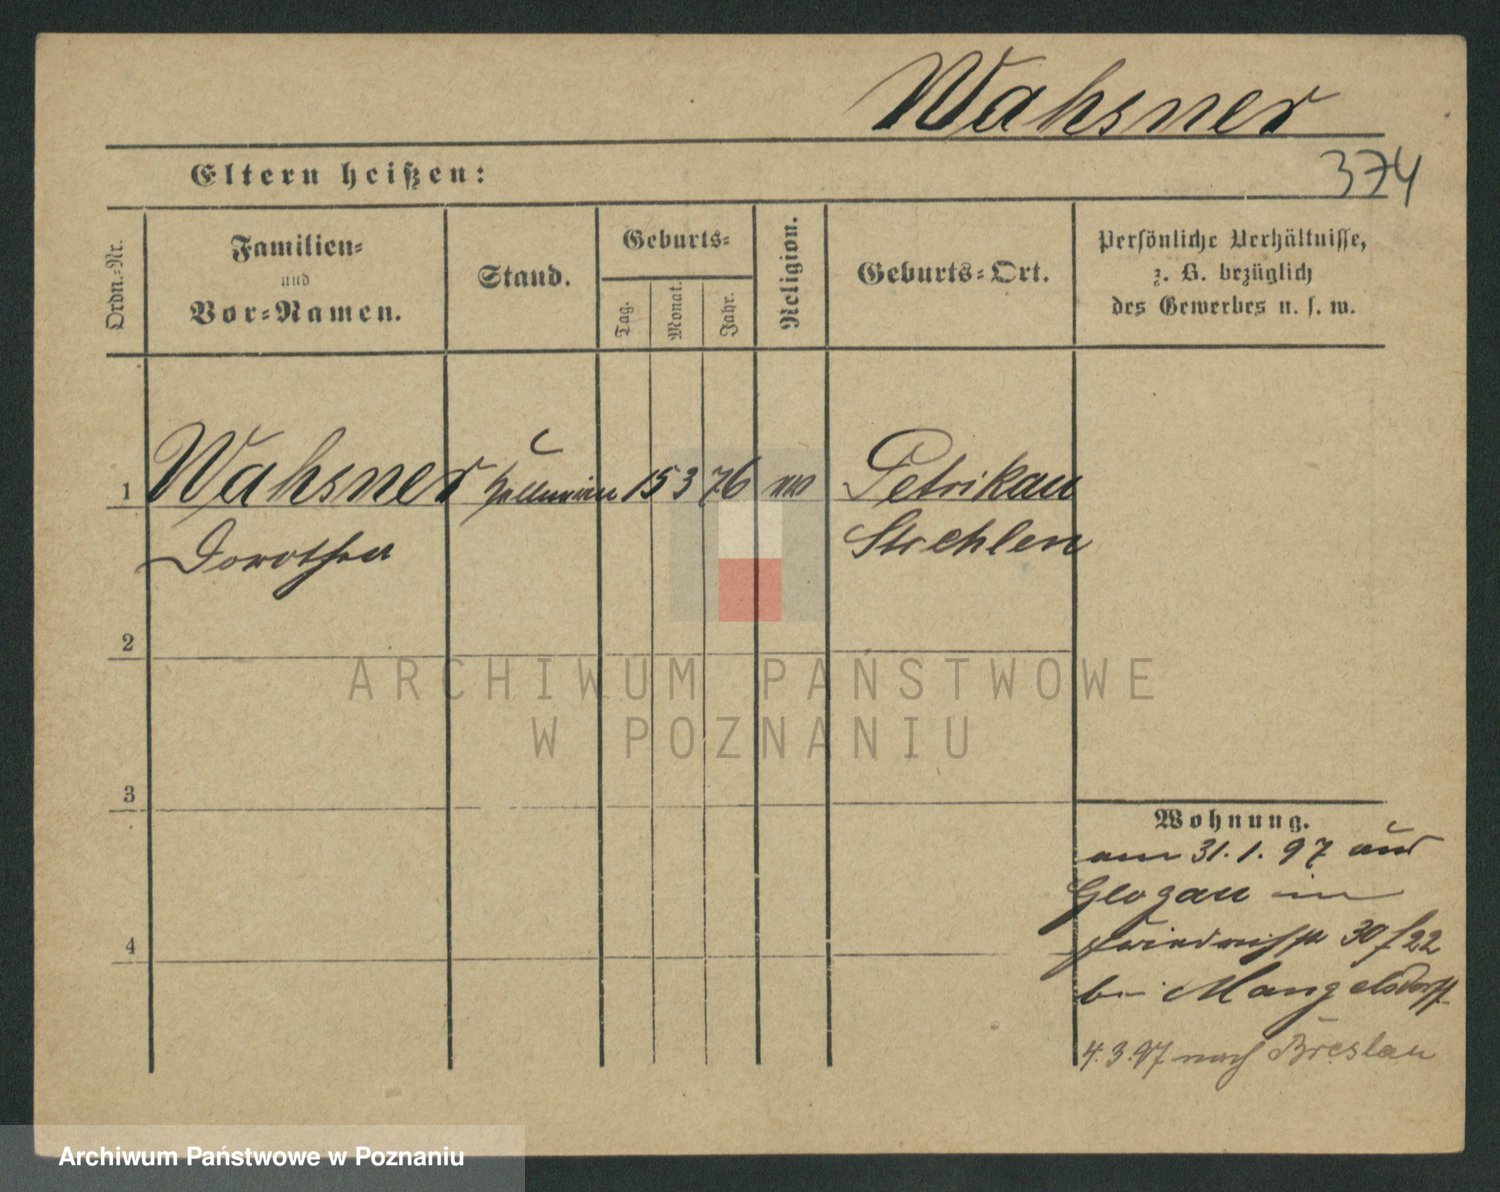 Wahsner
374
Eltern heißen:
Ordn.-Nr.
Familien-
und
Vor-Namen.
Stand.
Geburts-
Tag.
Monat.
Jahr.
Religion.
Geburts-Ort.
Persönliche Verhältnisse,
z. B. bezüglich
des Gewerbes u. s. w.
1 Wahsner Kellnerin 15 3 76 Petrikau
Dorothea Strehlen
2
ARCHIWUM PAŃSTWOWE
W POZNANIU
3
Wohnung.
am 31.1.97 aus
Glogau in
4
Friedrichstr 30/22
bei Mangelsdorff
4.3.97 nach Breslau
Archiwum Państwowe w Poznaniu